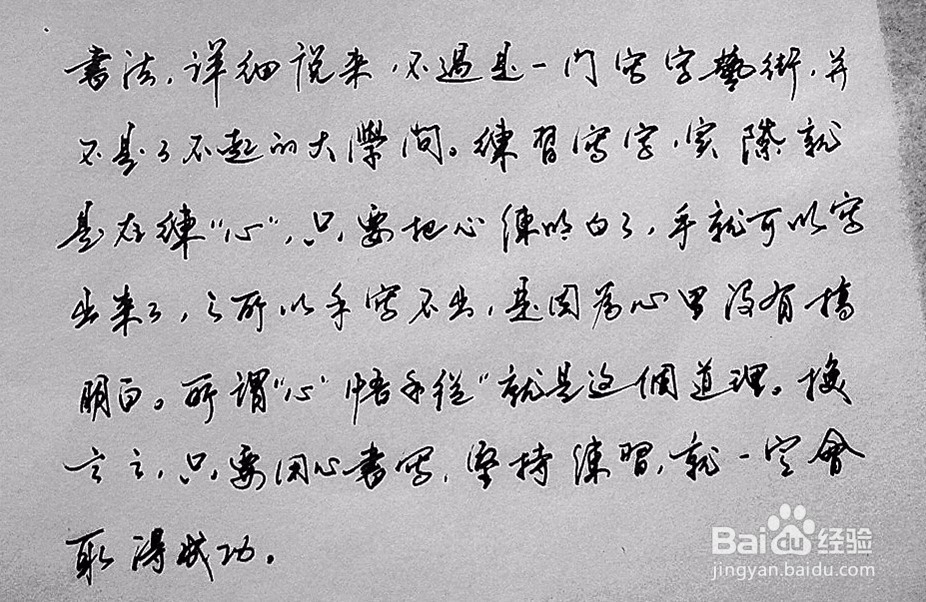 書法，详细说来，不過是一门写字藝術，并
不是了不起的大學问。練習寫字，实際就
是在練“心”，只要把心練明白了，手就可以写
出来了，之所以手写不出，是因為心里没有搞
明白。所謂“心悟手從”就是这個道理。换
言之，只要用心書写，坚持練習，就一定會
取得成功。
Baidu经验
jingyan.baidu.com